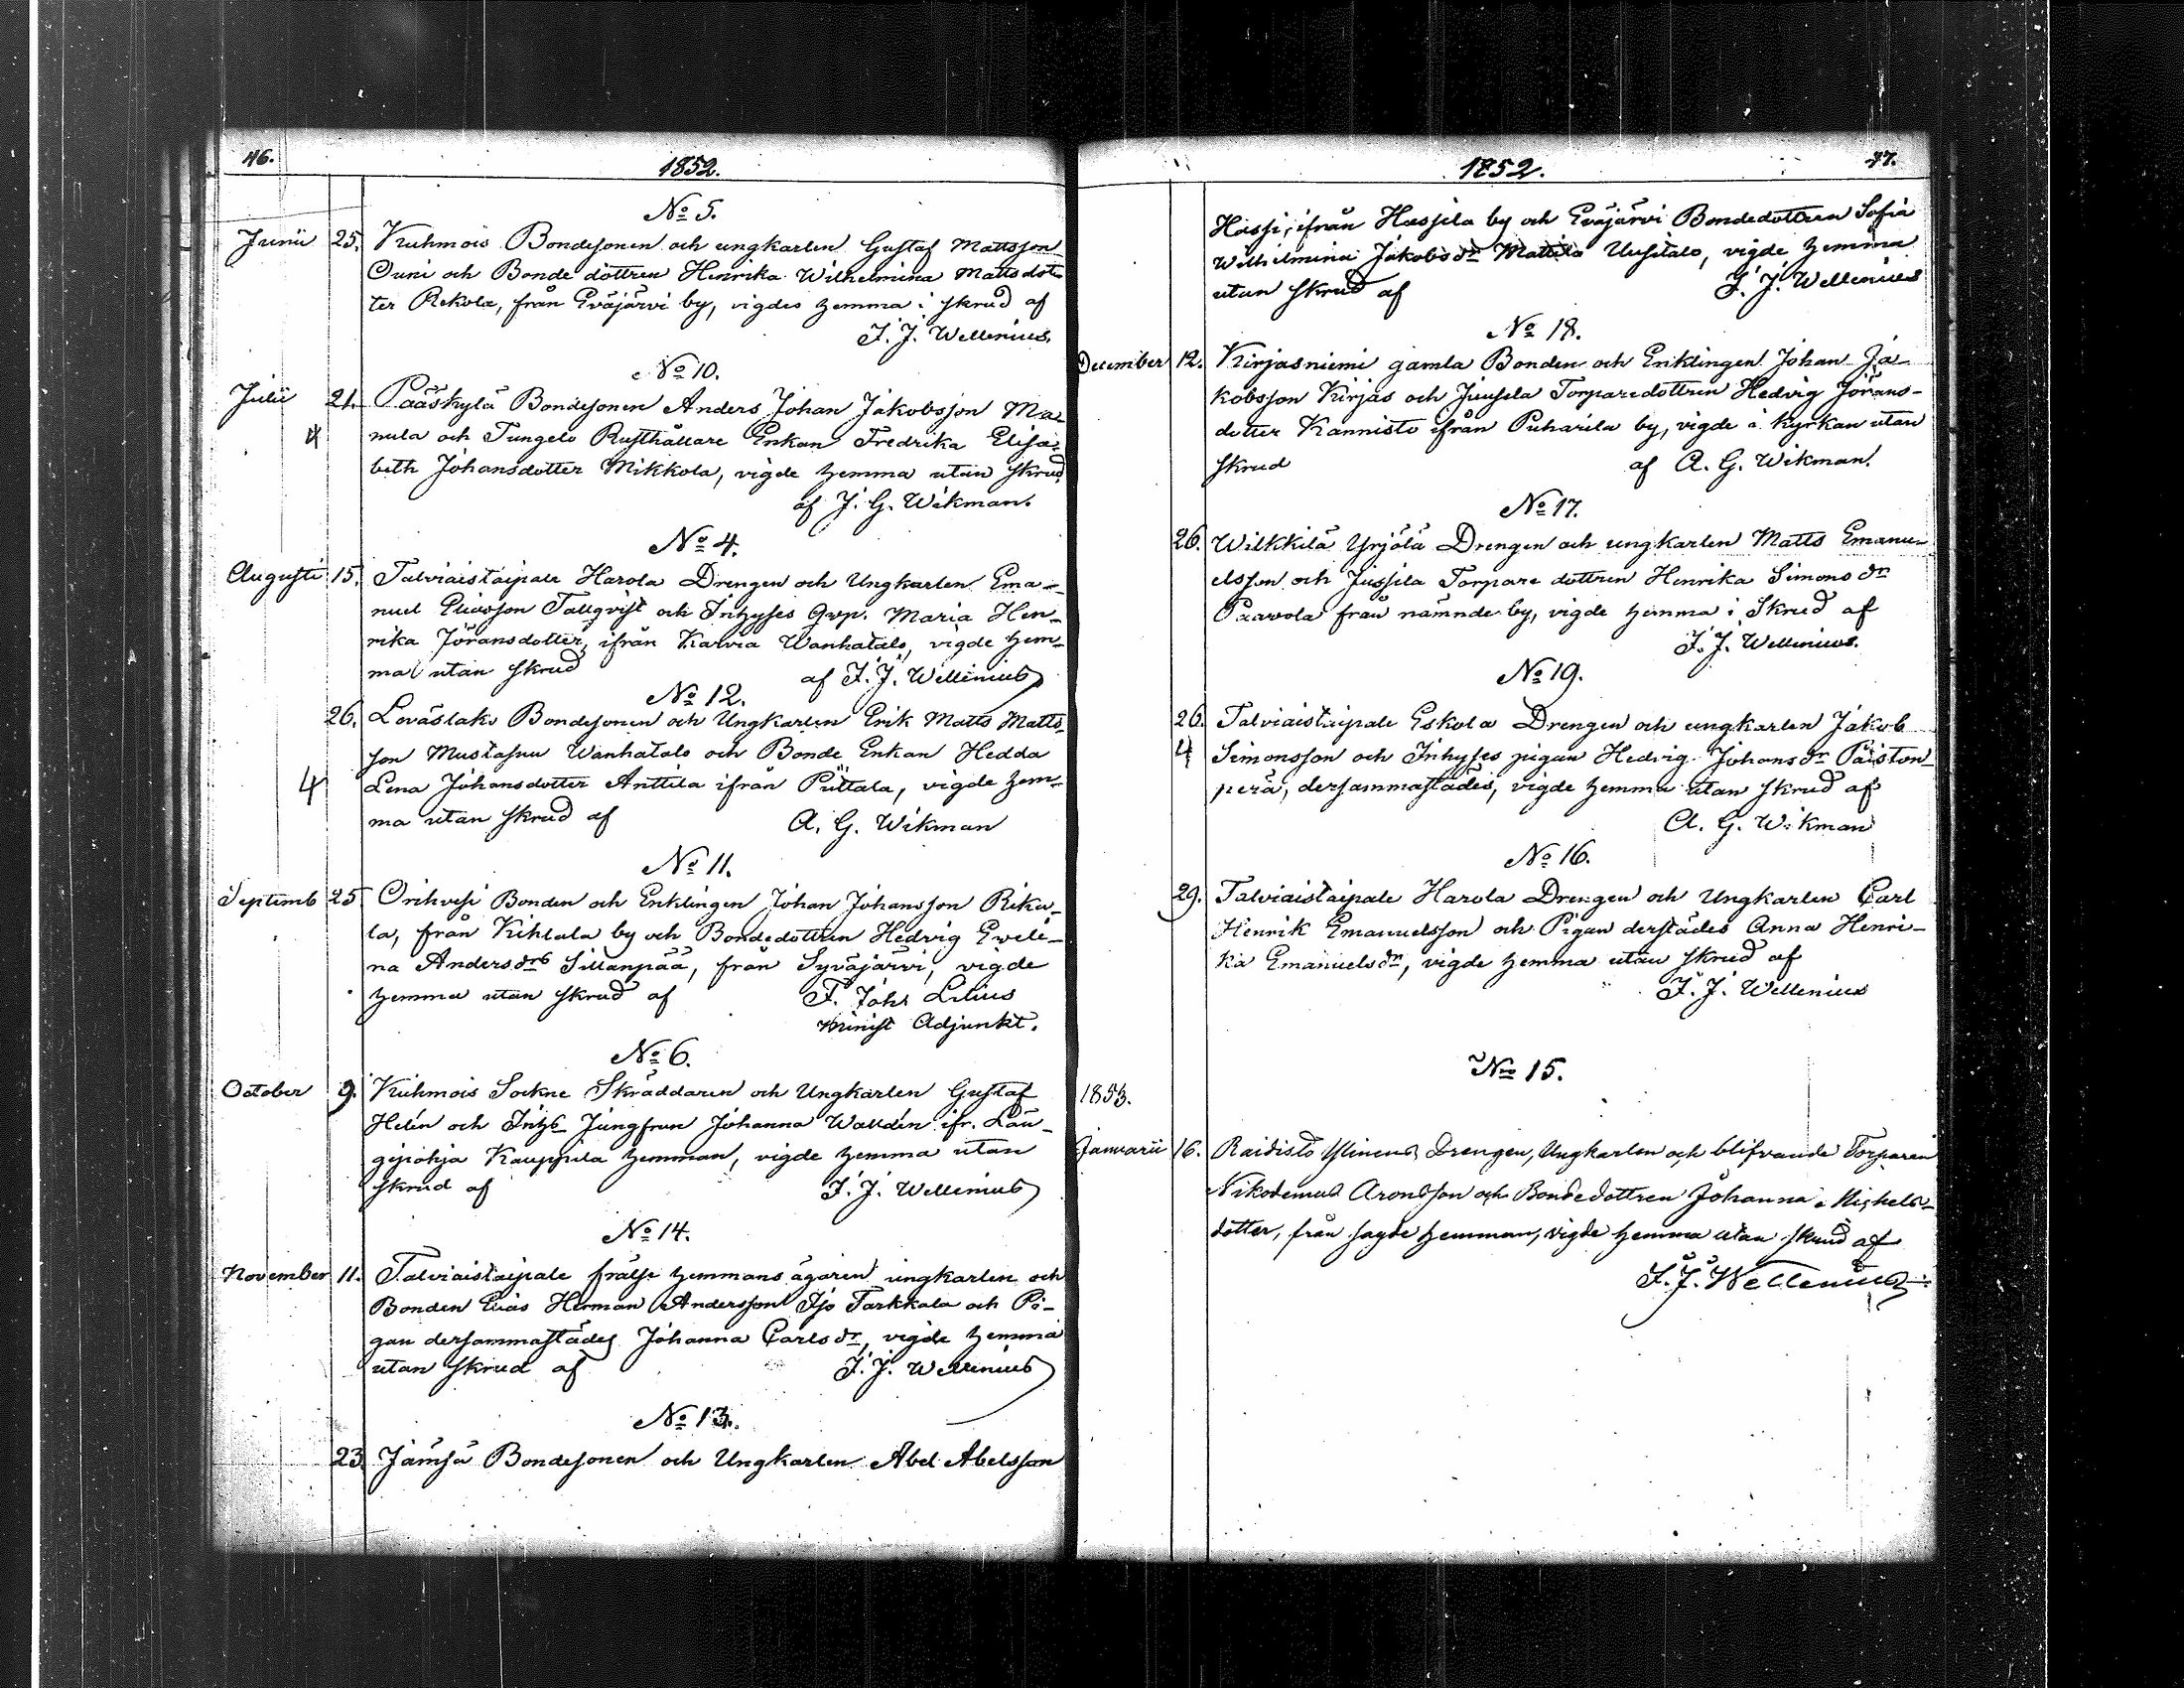 46.
1852.
No 5.
Junii 25. Kuhmois Bondesonen och ungkarlen Gustaf Mattsson
Ouni och Bonde dottren Henrika Wilhelmina Mattsdot-
ter Rekola, från Eväjärvi by, vigdes hemma i skrud af
F. J. Wellenius.
No 10.
Julii 21. Pääskylä Bondesonen Anders Johan Jakobsson Ma-
4 nula och Tungelo Rusthållare Enkan Fredrika Elisa-
beth Johansdotter Mikkola, vigde hemma utan skrud
af J. G. Wikman.
No 4.
Augusti 15. Talviaistaipale Harola Drengen och Ungkarlen Ema-
nuel Eliasson Tallqvist och Inhyses Qvp. Maria Hen-
rika Jöransdotter, ifrån Karvia Wanhatalo, vigde hem-
ma utan skrud af F. J. Wellenius
No 12.
26. Leväslaks Bondesonen och Ungkarlen Erik Matts Matts-
son Mustasuu Wanhatalo och Bonde Enkan Hedda
4 Lena Johansdotter Anttila ifrån Pittala, vigde hem-
ma utan skrud af A. G. Wikman
No 11.
Septemb 25 Orihvesi Bonden och Enklingen Johan Johansson Riku-
la, från Kihlala by och Bondedottren Hedvig Eveli-
na Andersdrs Sillanpää, från Syväjärvi, vigde
hemma utan skrud af F. Joh. Lilius
minist Adjunkt.
No 6.
October 9. Kuhmois Sockne Skräddaren och Ungkarlen Gustaf
Helin och Inhs Jungfrun Johanna Walldén ifr. Län-
gipohja Kauppila hemman, vigde hemma utan
skrud af F. J. Wellenius
No 14.
November 11. Talviaistaipale frälse hemmans ägaren ungkarlen och
Bonden Elias Herman Andersson Iso Tarkkala och Pi-
gan dersammastädes Johanna Carlsdr, vigde hemma
utan skrud af F. J. Wellenius
No 13.
23. Jämsä Bondesonen och Ungkarlen Abel Abelsson
1852.
47.
Hassi, ifrån Hassila by och Eväjärvi Bondedottren Sofia
Wilhelmina Jakobsdr Mattila Uusitalo, vigde hemma
utan skrud af F. J. Wellenius
No 18.
December 12. Kirjasniemi gamla Bonden och Enklingen Johan Ja-
kobsson Kirjas och Juusela Torparedottren Hedvig Jörans-
dotter Kannisto ifrån Puharila by, vigde i kyrkan utan
skrud af A. G. Wikman.
No 17.
26. Wilkkilä Yrjölä Drengen och ungkarlen Matts Emanu-
elsson och Jussila Torpare dottren Henrika Simonsdr
Paavola från nämnde by, vigde hemma i Skrud af
F. J. Wellenius.
No 19.
26. Talviaistaipale Eskola Drengen och ungkarlen Jakob
4 Simonsson och Inhyses pigan Hedvig Johansdr Paiston-
perä, dersammastädes, vigde hemma utan skrud af
A. G. Wikman
No 16.
29. Talviaistaipale Harola Drengen och Ungkarlen Carl
Henrik Emanuelsson och Pigan derstädes Anna Henri-
ka Emanuelsdr, vigde hemma utan skrud af
F. J. Wellenius
No 15.
1853.
Januarii 16. Raidisto Ylinens Drengen, Ungkarlen och blifvande Torparen
Nikodemus Aronsson och Bondedottren Johanna Michels-
dotter, från sagde hemman, vigde hemma utan skrud af
F. J. Wellenius